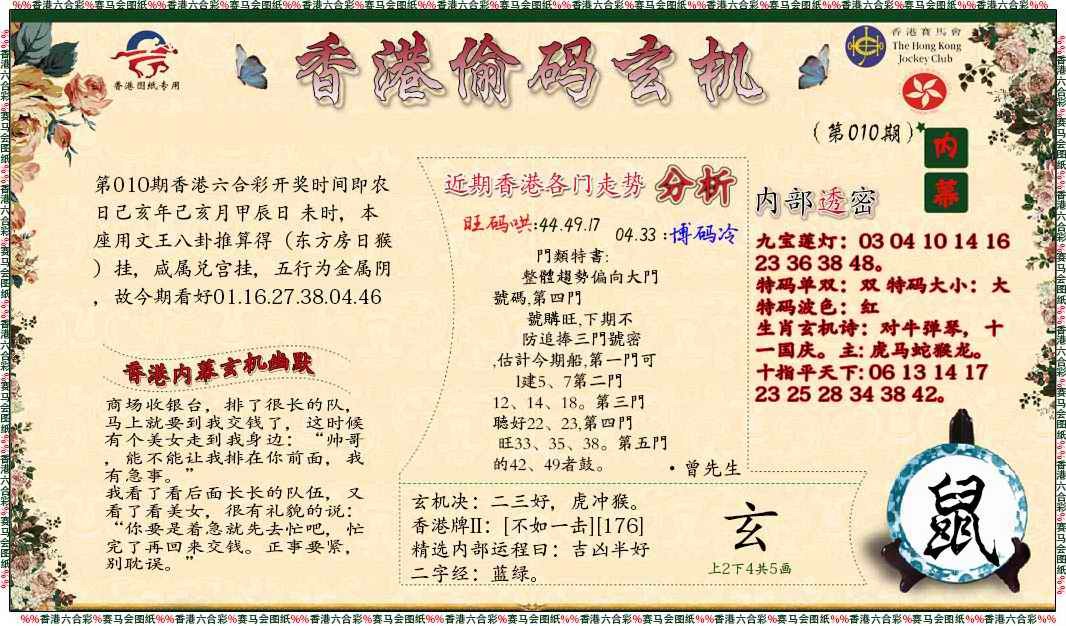 %%香港六合彩%赛马会图纸%%香港六合彩%赛马会图纸%%香港六合彩%赛马会图纸%%香港六合彩%赛马会图纸%%香港六合彩%赛马会图纸%%香港六合彩%%
香港图纸专用
香港偷码玄机
香港賽馬會
The Hong Kong
Jockey Club
(第010期)
内幕
第010期香港六合彩开奖时间即农
日己亥年己亥月甲辰日 未时，本
座用文王八卦推算得（东方房日猴
）挂，咸属兑宫挂，五行为金属阴
，故今期看好01.16.27.38.04.46
香港内幕玄机幽默
商场收银台，排了很长的队，
马上就要到我交钱了，这时候
有个美女走到我身边：“帅哥
，能不能让我排在你前面，我
有急事。”
我看了看后面长长的队伍，又
看了看美女，很有礼貌的说：
“你要是着急就先去忙吧，忙
完了再回来交钱。正事要紧，
别耽误。”
近期香港各门走势 分析
旺码哄:44.49.17
04.33 :博码冷
門類特書:
整體趨勢偏向大門
號碼,第四門
號購旺,下期不
防追捧三門號密
,估計今期船,第一門可
l建5、7第二門
12、14、18。第三門
聽好22、23,第四門
旺33、35、38。第五門
的42、49者鼓。
·曾先生
内部透密
九宝莲灯：03 04 10 14 16
23 36 38 48。
特码单双：双 特码大小：大
特码波色：红
生肖玄机诗：对牛弹琴，十
一国庆。主: 虎马蛇猴龙。
十指平天下: 06 13 14 17
23 25 28 34 38 42。
玄机决：二三好，虎冲猴。
香港牌II：[不如一击][176]
精选内部运程曰：吉凶半好
二字经：蓝绿。
玄
上2下4共5画
鼠
%%香港六合彩%赛马会图纸%%香港六合彩%赛马会图纸%%香港六合彩%赛马会图纸%%香港六合彩%赛马会图纸%%香港六合彩%赛马会图纸%%香港六合彩%%